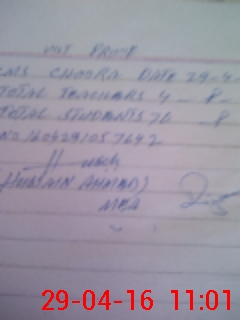 VST PROOF
CMS CHOORA DATE 29-4-
TOTAL TEACHERS 4 - P -
TOTAL STUDENTS 70 - P
NO 1604291057642
HUSSAIN AHMAD)
MEA
29-04-16 11:01